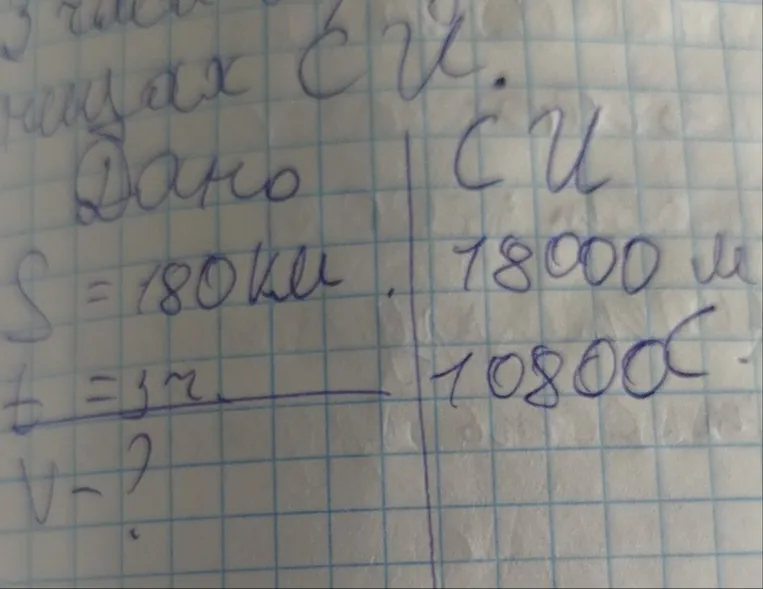 3 часа
ницах СИ.
Дано СИ
S = 180 км. 18000 м
t = 3 ч. 10800 С.
V - ?